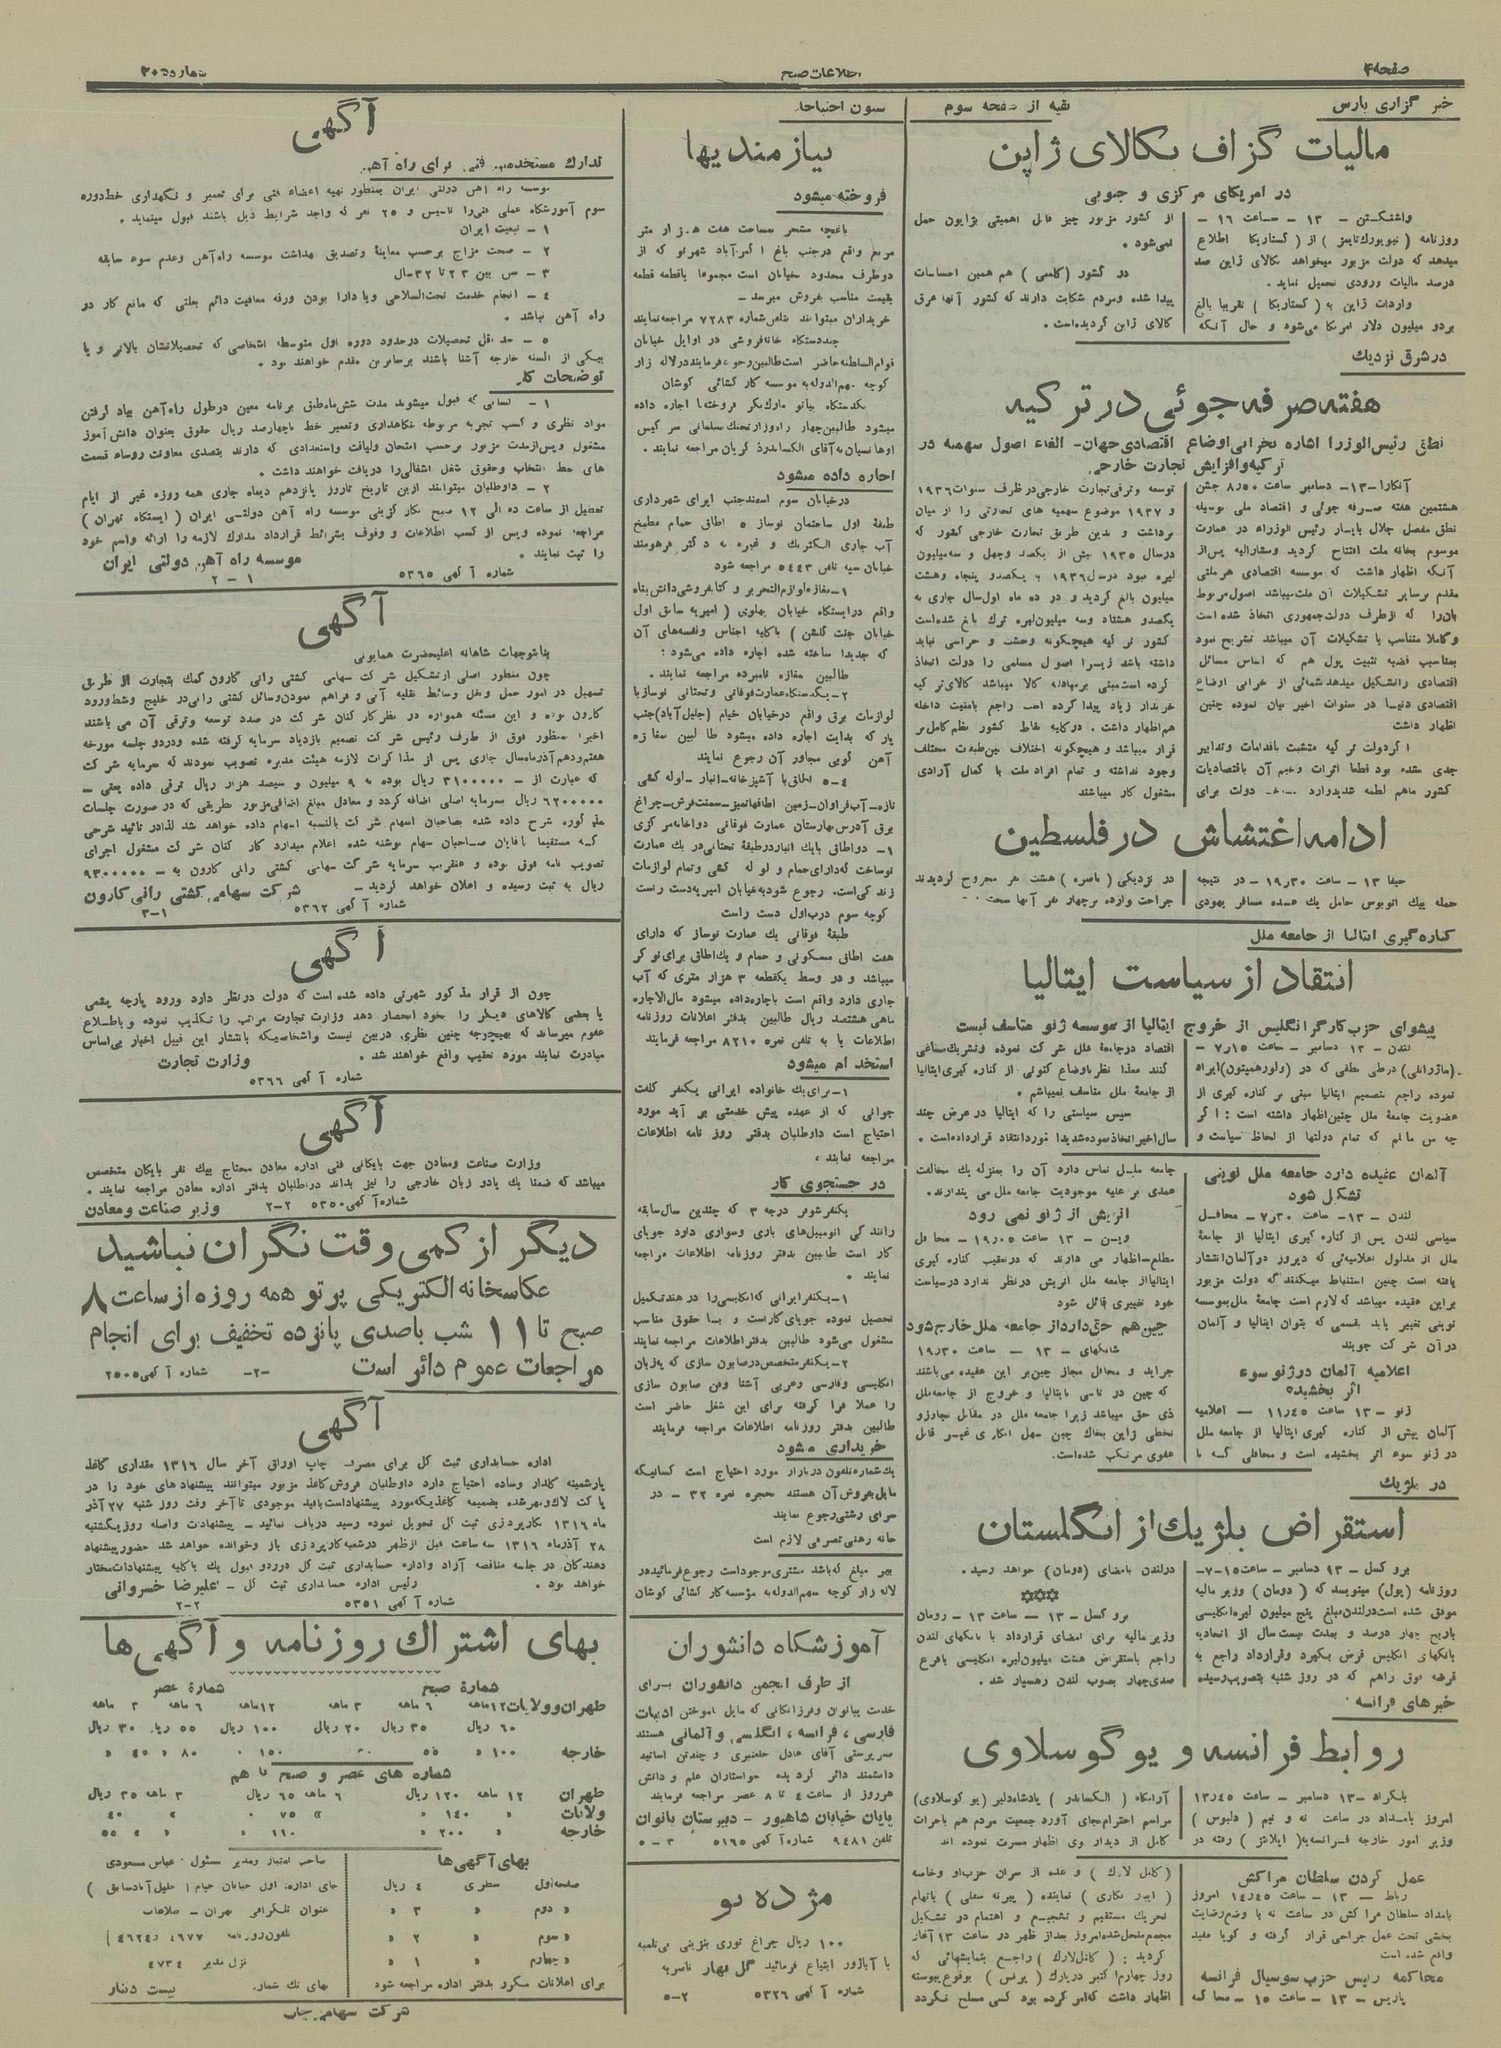 صفحه ۴
اطلاعات صبح
خبر گزاری پارس
بقیه از صفحه سوم
مالیات گزاف بکالای ژاپن
در امریکای مرکزی و جنوبی
واشنگتن - ۱۳ - ساعت ۱۶ -
روزنامه ( نیویورک تایمز ) از ( گستاریکا ) اطلاع
میدهد که دولت مزبور میخواهد بکالای ژاپن صد
درصد مالیات ورودی تحمیل نماید.
واردات ژاپن به ( گستاریکا ) تقریبا بالغ
بردو میلیون دلار امریکا می‌شود و حال آنکه
از کشور مزبور چیز قابل اهمیتی بژاپون حمل
نمی‌شود .
در کشور (کلمبی) هم همین احساسات
پیدا شده ومردم شکایت دارند که کشور آنها غرق
کالای ژاپن گردیده‌است.
در شرق نزدیک
هفته صرفه جوئی در ترکیه
نطق رئیس‌الوزرا اشاره بخرابی اوضاع اقتصادی جهان- الغاء اصول سهمیه در
ترکیه وافزایش تجارت خارجی
آنکارا -۱۳- دسامبر ساعت ۸٫۵۰ جشن
هشتمین هفته صرفه جوئی و اقتصاد ملی بوسیله
نطق مفصل جلال بایار رئیس الوزراء در عمارت
موسوم بخانه ملت افتتاح گردید ومشارالیه پس‌از
آنکه اظهار داشت که موسسه اقتصادی هر ملتی
مقدم برسایر تشکیلات آن ملت میباشد اصول مربوط
بانرا که ازطرف دولت جمهوری اتخاذ شده است
وکاملا متناسب با تشکیلات آن میباشد تشریح نمود
بمناسبت قضیه تثبیت پول هم که اساس مسائل
اقتصادی راتشکیل میدهد شمه‌ئی از خرابی اوضاع
اقتصادی دنیا در سنوات اخیر بیان نموده چنین
اظهار داشت
اگر دولت ترکیه متشبث باقدامات وتدابیر
جدی نشده بود قطعا اثرات وخیم آن باقتصادیات
کشور ماهم لطمه شدیدوارد دولت برای
توسعه وترقی تجارت خارجی درظرف سنوات ۱۹۳۶
و ۱۹۳۷ موضوع سهمیه های تجارتی را از میان
برداشت و بدین طریق تجارت خارجی کشور که
درسال ۱۹۳۵ بیش از یکصد وچهل و سه‌میلیون
لیره نبود درسال ۱۹۳۶ به یکصدو پنجاه وهشت
میلیون بالغ گردید و در ده ماه اول سال جاری به
یکصدو هشتاد وسه میلیون لیره ترک بالغ شده‌است
کشور ترکیه هیچگونه وحشت و هراسی نباید
داشته باشد زیرا اصول مسلمی را دولت اتخاذ
کرده است مبنی برمبادله کالا میباشد کالای ترکیه
خریدار زیاد پیدا کرده است راجع بامنیت داخله
هم اظهار داشت . در کلیه نقاط کشور نظم کامل بر
قرار میباشد و هیچگونه اختلاف بین طبقات مختلف
وجود نداشته و تمام افراد ملت با کمال آزادی
مشغول کار میباشند
ادامه اغتشاش در فلسطین
حیفا ۱۳ - ساعت ۱۹٫۳۰ - در نتیجه
حمله بیک اتوبوس حامل یک عده مسافر یهودی
در نزدیکی ( ناصره ) هشت نفر مجروح گردیدند
جراحت وارده برچهار نفر آنها سخت
کناره گیری ایتالیا از جامعه ملل
انتقاد از سیاست ایتالیا
پیشوای حزب کارگر انگلیس از خروج ایتالیا از موسسه ژنو متاسف نیست
لندن - ۱۳ دسامبر - ساعت ۷٫۱۵ -
درطی نطقی که در (ولورهمپتون) ایراد
نموده راجع بتصمیم ایتالیا مبنی بر کناره گیری از
عضویت جامعهٔ ملل چنین اظهار داشته است : اگر
چه من مایلم که تمام دولتها از لحاظ سیاست و
اقتصاد درجامعهٔ ملل شرکت نموده وتشریک مساعی
کنند معذا نظر باوضاع کنونی از کناره گیری ایتالیا
از جامعهٔ ملل متاسف نمیباشم .
سپس سیاستی را که ایتالیا در عرض چند
سال اخیر اتخاذ نموده شدیدا مورد انتقاد قرار داده‌است .
آلمان عقیده دارد جامعه ملل نوینی
تشکیل شود
لندن - ۱۳- ساعت ۷٫۳۰ - محافل
سیاسی لندن پس از کناره گیری ایتالیا از جامعهٔ
ملل از مدلول اعلامیه‌ئی که دیروز درآلمان انتشار
یافته است چنین استنباط میکنند که دولت مزبور
براین عقیده میباشد که لازم است جامعهٔ ملل بموسسه
نوینی تغییر یابد بقسمی که بتوان ایتالیا و آلمان
درآن شرکت جویند
اعلامیه آلمان در ژنو سوء
اثر بخشیده
ژنو - ۱۳ ساعت ۱۱٫۴۵ — اعلامیه
آلمان پیش از کناره گیری ایتالیا از جامعه ملل
در ژنو سوء اثر بخشیده است و محافلی که با
جامعه ملل تماس دارد آن را بمنزله یک مخالفت
عمدی بر علیه موجودیت جامعه ملل می پندارند.
اتریش از ژنو نمی رود
وین - ۱۳ ساعت ۱۹٫۰۵ - محافل
مطلع اظهار می دارند که درتعقیب کناره گیری
ایتالیا از جامعه ملل اتریش در نظر ندارد درسیاست
خود تغییری قائل شود
چین هم حق دارد از جامعه ملل خارج شود
شانگهای - ۱۳ — ساعت ۱۹٫۳۰
جراید و محافل مجاز چین بر این عقیده می‌باشند
که چین در تاسی بایتالیا و خروج از جامعه ملل
ذی حق میباشد زیرا جامعه ملل در مقابل تجاوز و
تخطی ژاپن بخاک چین سهل انگاری غیر قابل
عفوی مرتکب شده‌است.
در بلژیک
استقراض بلژیک از انگلستان
بروکسل - ۱۳ دسامبر - ساعت ۷-۱۵-
روزنامه (پول) مینویسد که ( دومان ) وزیر مالیه
موفق شده است درلندن مبلغ پنج میلیون لیره انگلیسی
باربح چهار درصد و بمدت بیست سال از اتحادیه
بانکهای انگلیس قرض بگیرد وقرارداد راجع به
قرضه فوق راهم که در روز شنبه بتصویب رسیده
درلندن بامضای (دومان) خواهد رسید.
✡✡✡
بروکسل - ۱۳ — ساعت ۱۳ - رومان
وزیر مالیه برای امضای قرارداد با بانکهای لندن
راجع باستقراض هشت میلیون لیره انگلیسی بافرع
صدی چهار بصوب لندن رهسپار شد .
خبرهای فرانسه
روابط فرانسه و یوگوسلاوی
بلگراد -۱۳ دسامبر - ساعت ۱۳٫۴۵
امروز بامداد در ساعت نه و نیم ( دلبوس )
وزیر امور خارجه فرانسه به( اپلانتز ) رفته در
آرامگاه ( الکساندر ) پادشاه دلیر (یوگوسلاوی)
مراسم احترام بجای آورد جمعیت مردم هم باحرات
کامل از دیدار وی اظهار مسرت نموده اند
عمل کردن سلطان مراکش
رباط - ۱۳ - ساعت ۱۴٫۴۵ امروز
بامداد سلطان مراکش در ساعت نه با وضع رضایت
بخشی تحت عمل جراحی قرار گرفته و گویا مفید
واقع شده است
محاکمه رئیس حزب سوسیال فرانسه
پاریس - ۱۳ - ساعت ۱۵ - محاکمه
وعده از سران حزب او وخاصه
نماینده ( پیرنه سفلی ) باتهام
تحریک مستقیم و تشجیع و اهتمام در تشکیل
مجمع منحل شده امروز بعداز ظهر در ساعت ۱۳ آغاز
گردید :
روز چهارم اکتبر درپارک ( پرنس ) بوقوع پیوسته
اظهار داشت که امر کرده بود کسی مسلح نگردد
ستون احتیاجات
نیازمندیها
فروخته میشود
باغچه مشجر بمساحت هفت هزار متر
مربع واقع درجنب باغ اکبرآباد شهرنو که از
دوطرف محدود بخیابان است مجموعا یا قطعه قطعه
بقیمت مناسب بفروش میرسد -
خریداران میتوانند بتلفن شماره ۷۲۸۳ مراجعه نمایند
چنددستگاه خانه فروشی در اوایل خیابان
قوام السلطنه حاضر است طالبین رجوع فرمایند در لاله زار
کوچه مهم‌الدوله به موسسه کار گشائی کوشان
یکدستگاه پیانو مارک بکر فروخته یا اجاره داده
میشود
اجاره داده میشود
درخیابان سوم اسفند جنب اپرای شهرداری
طبقهٔ اول ساختمان نوساز ۵ اطاق حمام مطبخ
آب جاری الکتریک و غیره به دکتر فرهومند
خیابان سپه تلفن ۵۴۴۳ مراجعه شود
۱-مغازه لوازم التحریر و کتابفروشی دانش پناه
واقع درایستگاه خیابان پهلوی ( امیریه سابق اول
خیابان جنت گلشن ) باکلیه اجناس وقفسه‌های آن
که جدیدا ساخته شده اجاره داده می‌شود :
طالبین مغازه نامبرده مراجعه نمایند.
۲-یکدستگاه عمارت فوقانی و تحتانی نوساز با
لوازمات برق واقع درخیابان خیام (جلیل آباد)جنب
پارک بدایت اجاره داده میشود طالبین مغازه
آهن کوبی مجاور آن رجوع نمایند
۴-۵ اطاق با آشپزخانه - انبار - لوله کشی
تازه-آب فراوان-زمین
برق آدرس بهارستان عمارت فوقانی دواخانه مرکزی
۱- دو اطاق بایک انبار درطبقهٔ تحتانی در یک عمارت
نوساخت که دارای حمام و لوله کشی و تمام لوازمات
زندگی است. رجوع شود به خیابان امیریه دست راست
کوچه سوم درب اول دست راست
طبقهٔ فوقانی یک عمارت نوساز که دارای
هفت اطاق مسکونی و حمام و یک اطاق برای نوکر
میباشد و در وسط یکقطعه ۳ هزار متری که آب
جاری دارد واقع است باجاره داده میشود مال الاجاره
ماهی هشتصد ریال طالبین بدفتر اعلانات روزنامه
اطلاعات یا به تلفن نمره ۸۲۱۰ مراجعه فرمایند
استخدام میشود
۱-برای یک خانواده ایرانی یکنفر کلفت
جوانی که از عهده پیش خدمتی بر آید مورد
احتیاج است داوطلبان بدفتر روز نامه اطلاعات
مراجعه نمایند ،
در جستجوی کار
یکنفر شوفر درجه ۳ که چندین سال سابقه
رانندگی اتومبیل‌های باری وسواری دارد جویای
کار است طالبین بدفتر روزنامه اطلاعات مراجعه
نمایند .
۱-یکنفر ایرانی که انگلیسی را در هند تکمیل
تحصیل نموده جویای کار است و بـا حقوق مناسب
مشغول می‌شود طالبین بدفتر اطلاعات مراجعه نمایند
۲-یکنفر متخصص درصابون سازی که بزبان
انگلیسی وفارسی وعربی آشنا وفن صابون سازی
را عملا فرا گرفته برای این شغل حاضر است
طالبین بدفتر روزنامه اطلاعات مراجعه فرمایند
خریداری میشود
یک شماره تلفون در بازار مورد احتیاج است کسانیکه
مایل بفروش آن هستند حجره نمره ۳۲ - در
سرای رشتی رجوع نمایند
خانه رهنی تصرفی لازم است
بهر مبلغ که باشد مشتری موجود است رجوع فرمائید در
لاله زار کوچه مهم‌الدوله به مؤسسه کار گشائی کوشان
آموزشگاه دانشوران
از طرف انجمن دانشوران برای
خدمت ببانوان وفرزانگانی که مایل بآموختن ادبیات
فارسی ، فرانسه ، انگلیسی و آلمانی هستند
سرپرستی آقای عادل خلعتبری و چندتن اساتید
دانشمند دائر گردیده خواستاران علم و دانش
هرروز از ساعت ۴ تا ۸ عصر مراجعه فرمایند
پایان خیابان شاهپور - دبیرستان بانوان
تلفن ۹۴۸۱ شماره آگهی ۵۱۶۵ ۳-۵
مژده نو
۱۰۰ ریال چراغ توری بنزینی بی‌تلمبه
با آباژور ابتیاع فرمائید گل بهار ناصریه
شماره آگهی ۵۳۲۶ ۲-۵
آگهی
تدارک مستخدمین فنی برای راه آهن
موسسه راه آهن دولتی ایران بمنظور تهیه اعضاء فنی برای تعمیر و نگهداری خط دوره
سوم آموزشگاه عملی فنی را تاسیس و ۲۵ نفر که واجد شرایط ذیل باشند قبول مینماید .
۱ - تبعیت ایران
۲ - صحت مزاج برحسب معاینهٔ وتصدیق بهداشت موسسه راه‌آهن وعدم سوء سابقه
۳ - سن بین ۲۳ تا ۳۲ سال
۴ - انجام خدمت تحت‌السلاحی ویا دارا بودن ورقه معافیت دائم بعلتی که مانع کار در
راه آهن نباشد .
۵ - حداقل تحصیلات درحدود دوره اول متوسطه اشخاصی که تحصیلاتشان بالاتر و یا
بیکی از السنه خارجه آشنا باشند برسایرین مقدم خواهند بود .
توضیحات کار
۱ - کسانی که قبول میشوند مدت شش ماه طبق برنامه معین درطول راه آهن بیاد گرفتن
مواد نظری و کسب تجربه مربوطه بنگاهداری وتعمیر خط باچهارصد ریال حقوق بعنوان دانش آموز
مشغول وپس ازمدت مزبور برحسب امتحان ولیاقت واستعدادی که دارند بتصدی معاونت روساء قسمت
های خط انتخاب وحقوق شغل اشغالی را دریافت خواهند داشت .
۲ - داوطلبان میتوانند ازین تاریخ تاروز پانزدهم دیماه جاری همه روزه غیر از ایام
تعطیل از ساعت ده الی ۱۲ صبح بکارگزینی موسسه راه آهن دولتی ایران ( ایستگاه تهران )
مراجعه نموده وپس از کسب اطلاعات و وقوف بشرائط قرارداد مدارک لازمه را ارائه واسم خود
را ثبت نمایند .
موسسه راه آهن دولتی ایران
شماره آگهی ۵۳۶۵ ۱-۲
آگهی
بنابتوجهات شاهانه اعلیحضرت همایونی
چون منظور اصلی ازتشکیل شرکت سهامی کشتی رانی کارون کمک بتجارت از طریق
تسهیل در امور حمل ونقل وسائط نقلیه آبی و فراهم نمودن وسائل کشتی رانی در خلیج وشط ورود
کارون بوده و این مسئله همواره در نظر کارکنان شرکت در صدد توسعه وترقی آن می باشند
اخیرا بمنظور فوق از طرف رئیس شرکت تصمیم بازدیاد سرمایه گرفته شده ودردو جلسه مورخه
هفتم ودهم آذرماه سال جاری پس از مذاکرات لازمه هیئت مدیره تصویب نمودند که سرمایه شرکت
که عبارت از - ۳۱۰۰۰۰۰ ریال بوده به ۹ میلیون و سیصد هزار ریال ترقی داده یعنی -
۶۲۰۰۰۰۰ ریال بسرمایه اصلی اضافه گردد و معادل مبلغ اضافی مزبور بطریقی که در صورت جلسات
مذکوره شرح داده شده بصاحبان اسهام شرکت بالنسبه اسهام داده خواهد شد لذا در تائید شرحی
که مستقیما باقایان صاحبان سهام نوشته شده اعلام میدارد کارکنان شرکت مشغول اجرای
تصویب نامه فوق بوده و عنقریب سرمایه شرکت سهامی کشتی رانی کارون به - ۹۳۰۰۰۰۰
ریال به ثبت رسیده و اعلان خواهد گردید -
شرکت سهامی کشتی رانی کارون
شماره آگهی ۵۳۶۲ ۱-۳
آگهی
چون از قرار مذکور شهرتی داده شده است که دولت درنظر دارد ورود پارچه پشمی
یا بعضی کالاهای دیگر را بخود انحصار دهد وزارت تجارت مراتب را تکذیب نموده و باطلاع
عموم میرساند که بهیچوجه چنین نظری دربین نیست واشخاصیکه بانتشار این قبیل اخبار بی‌اساس
مبادرت نمایند مورد تعقیب واقع خواهند شد .
وزارت تجارت
شماره آگهی ۵۳۶۶
آگهی
وزارت صناعت ومعادن جهت بایگانی فنی اداره معادن محتاج بیک نفر بایگان متخصص
میباشد که ضمنا یک یادو زبان خارجی را نیز بداند داوطلبان بدفتر اداره معادن مراجعه نمایند .
شماره آگهی ۵۳۵۰ ۲-۲ وزیر صناعت و معادن
دیگر از کمی وقت نگران نباشید
عکاسخانه الکتریکی پرتو همه روزه از ساعت ۸
صبح تا ۱۱ شب باصدی پانزده تخفیف برای انجام
مراجعات عموم دائر است -۲- شماره آگهی ۲۵۰۵
آگهی
اداره حسابداری ثبت کل برای مصرف چاپ اوراق آخر سال ۱۳۱۶ مقداری کاغذ
پارشمینه گلدار وساده احتیاج دارد داوطلبان فروش کاغذ مزبور میتوانند پیشنهادهای خود را در
پاکت لاک ومهر شده بضمیمه کاغذیکه مورد پیشنهاد است باقید موجودی تا آخر وقت روز شنبه ۲۷ آذر
ماه ۱۳۱۶ بکارپردازی ثبت کل تحویل نموده رسید دریافت نمائید - پیشنهادات واصله روز یکشنبه
۲۸ آذرماه ۱۳۱۶ سه ساعت قبل ازظهر در شعبه کارپردازی باز وخوانده خواهد شد حضور پیشنهاد
دهندگان در جلسه مناقصه آزاد واداره حسابداری ثبت کل دررد و قبول یک یا کلیه پیشنهادات مختار
خواهد بود . رئیس اداره حسابداری ثبت کل - علیرضا خسروانی
شماره آگهی ۵۳۵۱ ۲-۲
بهای اشتراک روزنامه و آگهی‌ها
شمارهٔ صبح شمارهٔ عصر
طهران وولایات ۱۲ ماهه ۶ ماهه ۳ ماهه ۱۲ ماهه ۶ ماهه ۳ ماهه
۶۰ ریال ۳۵ ریال ۲۰ ریال ۱۰۰ ریال ۵۵ ریال ۳۰ ریال
خارجه ۱۰۰ » ۵۵ ۱۵۰ ۸۰ » ۴۵ »
شماره های عصر و صبح با هم
طهران ۱۲ ماهه ۱۲۰ ریال ۶ ماهه ۶۵ ریال ۳ ماهه ۳۵ ریال
ولایات » ۱۴۰ » » ۷۵ » » ۴۰
خارجه » ۲۰۰ » » ۱۱۰ » » ۵۵
بهای آگهی‌ها
صفحه اول سطری ۴ ریال
» دوم » ۳ »
» سوم » ۲ »
» چهارم » ۱ »
برای اعلانات مکرر بدفتر اداره مراجعه شود
صاحب امتیاز ومدیر مسئول : عباس مسعودی
جای اداره : اول خیابان خیام ( جلیل آباد سابق )
عنوان تلگرافی تهران - اطلاعات
تلفون روزنامه ۴۶۷۷ و ۴۶۲۴
منزل مدیر ۴۷۳۴
بهای تک شماره بیست دینار
شرکت سهامی چاپ